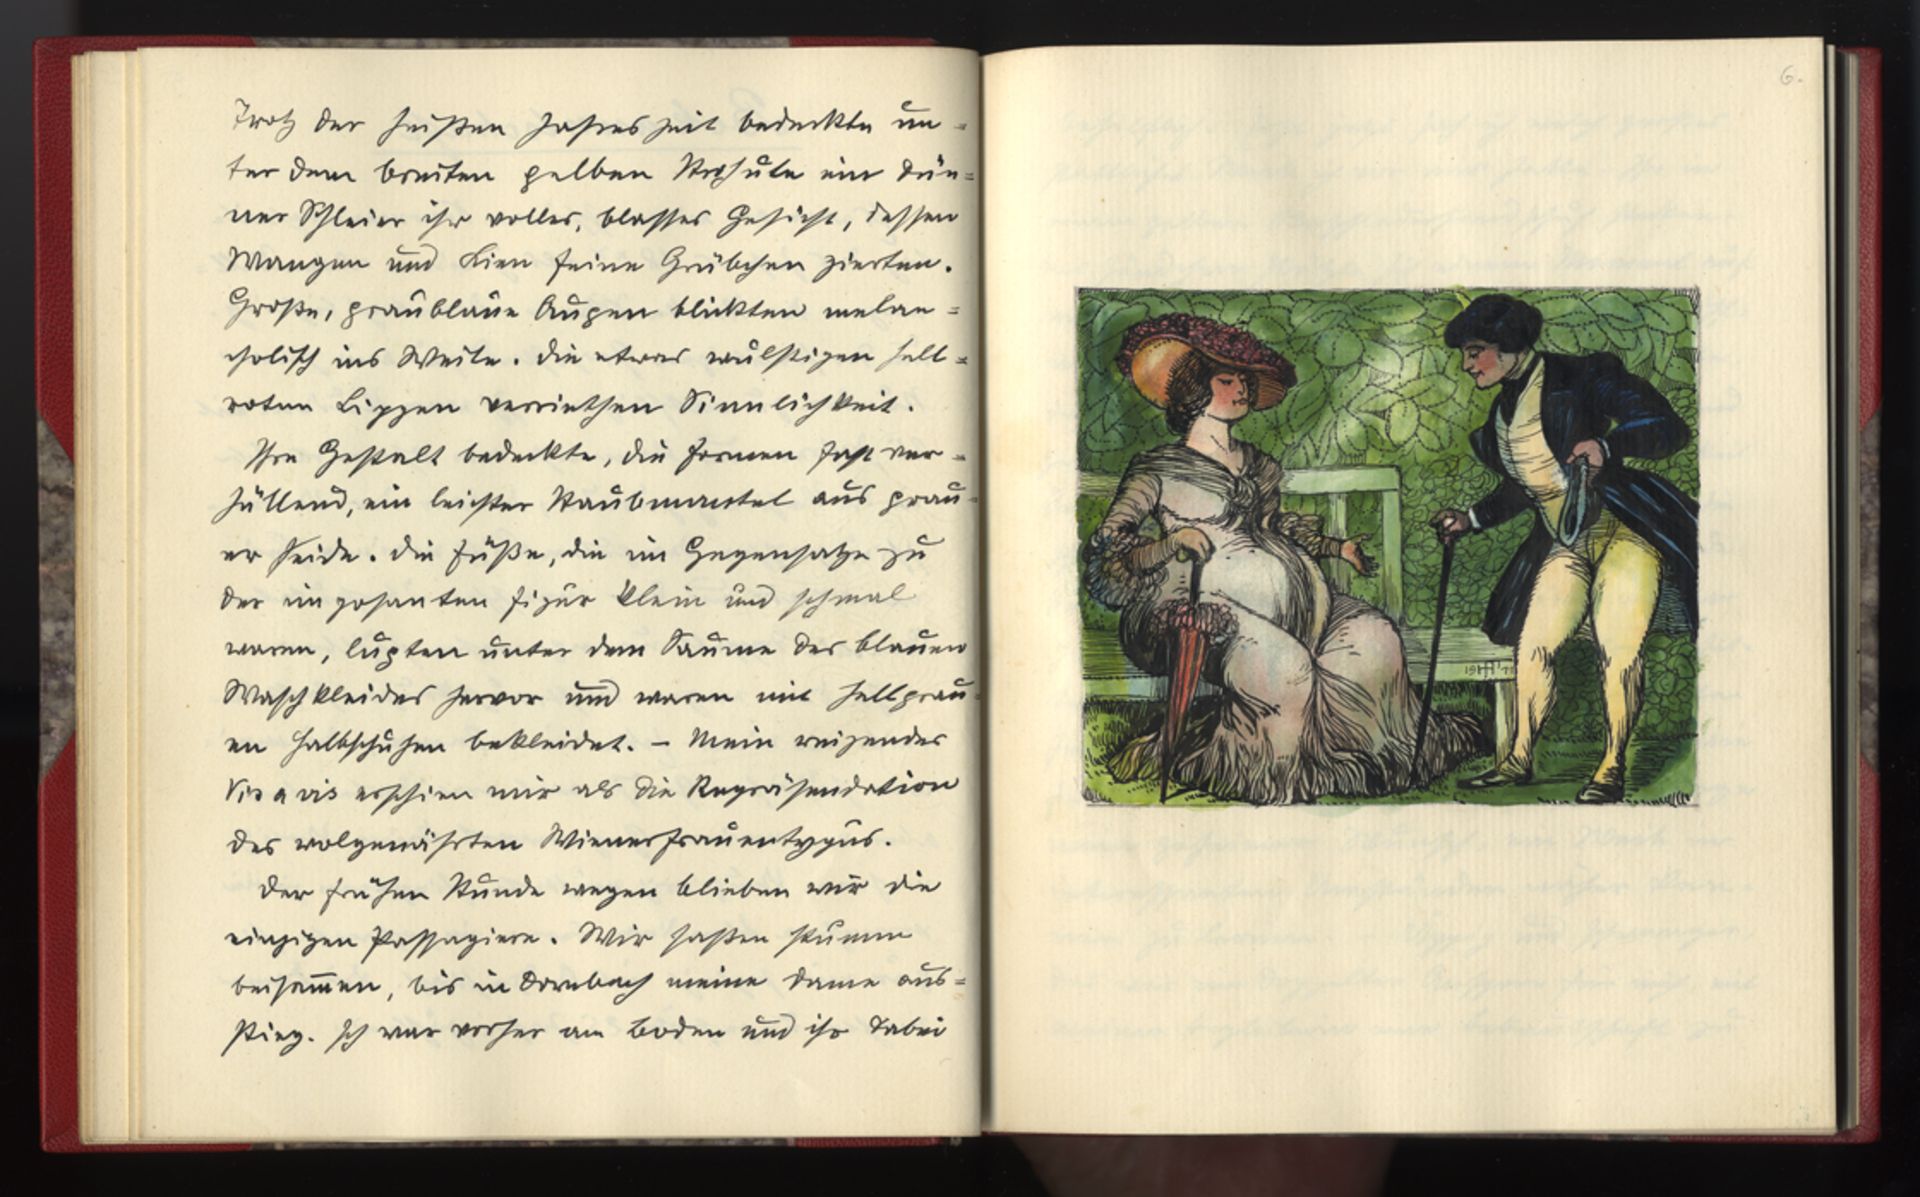 Trotz der heißen Jahreszeit bedeckte un=
ter dem breiten gelben Strohute ein dün=
ner Schleier ihr volles, blasses Gesicht, dessen
Wangen und Kien feine Grübchen zierten.
Große, graublaue Augen blickten melan=
cholisch ins Weite. Die etwas wulstigen hell=
roten Lippen verriethen Sinnlichkeit.
Ihre Gestalt bedeckte, die Formen fast ver=
hüllend, ein leichter Staubmantel aus grau=
er Seide. Die Füße, die im Gegensatze zu
der imposanten Figur klein und schmal
waren, lugten unter dem Saume des blauen
Waschkleides hervor und waren mit hellgrau=
en Halbschuhen bekleidet. – Mein reizendes
Vis a vis erschien mir als die Repräsendation
des wolgenährten Wienerfrauentypus.
Der frühen Stunde wegen blieben wir die
einzigen Passagiere. Wir saßen stumm
beisam̅en, bis in Dornbach meine Dame aus=
stieg. Ich war vorher am Boden und ihr dabei
6.